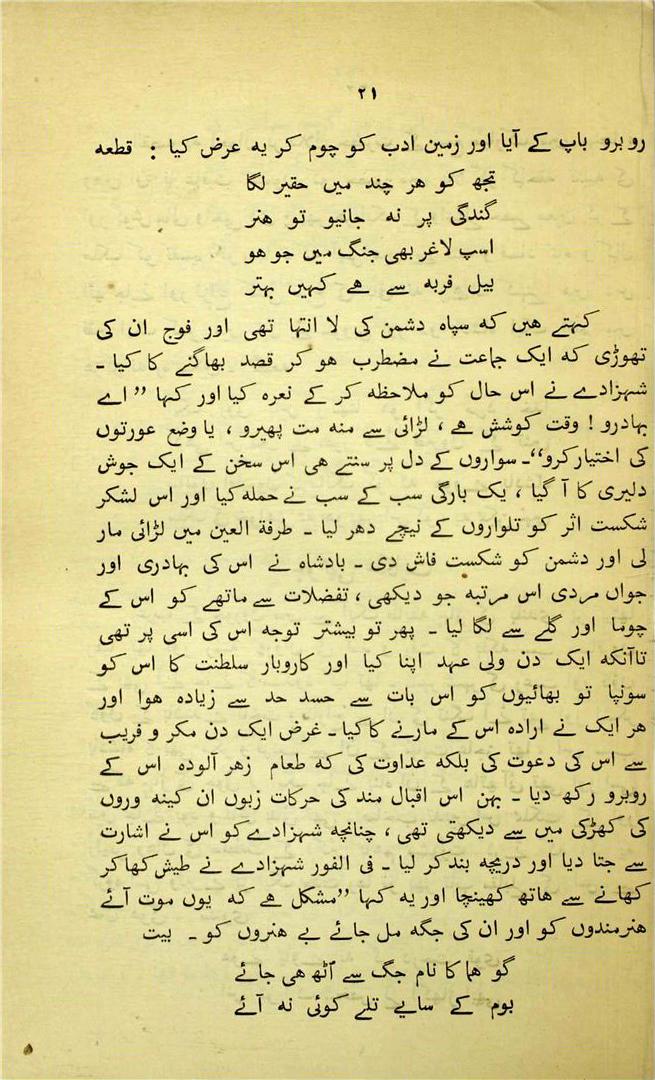 ۲۱
رو برو باپ کے آیا اور زمین ادب کو چوم کر یہ عرض کیا : قطعہ
تجھ کو ھر چند میں حقیر لگا
گندگی پر نہ جانیو تو ھنر
اسپ لاغر بھی جنگ میں جو ھو
بیل فربہ سے ھے کہیں بہتر
کہتے ھیں کہ سپاہ دشمن کی لا انتہا تھی اور فوج ان کی
تھوڑی کہ ایک جماعت نے مضطرب ھو کر قصد بھاگنے کا کیا ۔
شہزادے نے اس حال کو ملاحظہ کر کے نعرہ کیا اور کہا ”اے
بہادرو ! وقت کوشش ھے ، لڑائی سے منہ مت پھیرو ، یا وضع عورتوں
کی اختیار کرو“۔ سواروں کے دل پر سنتے ھی اس سخن کے ایک جوش
دلیری کا آ گیا ، یک بارگی سب کے سب نے حملہ کیا اور اس لشکر
شکست اثر کو تلواروں کے نیچے دھر لیا ۔ طرفة العین میں لڑائی مار
لی اور دشمن کو شکست فاش دی ۔ بادشاہ نے اس کی بہادری اور
جواں مردی اس مرتبہ جو دیکھی ، تفضلات سے ماتھے کو اس کے
چوما اور گلے سے لگا لیا ۔ پھر تو بیشتر توجہ اس کی اسی پر تھی
تاآنکہ ایک دن ولی عہد اپنا کیا اور کاروبار سلطنت کا اس کو
سونپا تو بھائیوں کو اس بات سے حسد حد سے زیادہ ھوا اور
ھر ایک نے ارادہ اس کے مارنے کا کیا ۔ غرض ایک دن مکر و فریب
سے اس کی دعوت کی بلکہ عداوت کی کہ طعام زھر آلودہ اس کے
روبرو رکھ دیا ۔ بہن اس اقبال مند کی حرکات زبوں ان کینہ وروں
کی کھڑکی میں سے دیکھتی تھی ، چنانچہ شہزادے کو اس نے اشارت
سے جتا دیا اور دریچہ بند کر لیا ۔ فی الفور شہزادے نے طیش کھا کر
کھانے سے ھاتھ کھینچا اور یہ کہا ”مشکل ھے کہ یوں موت آئے
ھنرمندوں کو اور ان کی جگہ مل جائے بے ھنروں کو ۔ بیت
گو ھما کا نام جگ سے اٹھ ھی جائے
بوم کے سایے تلے کوئی نہ آئے